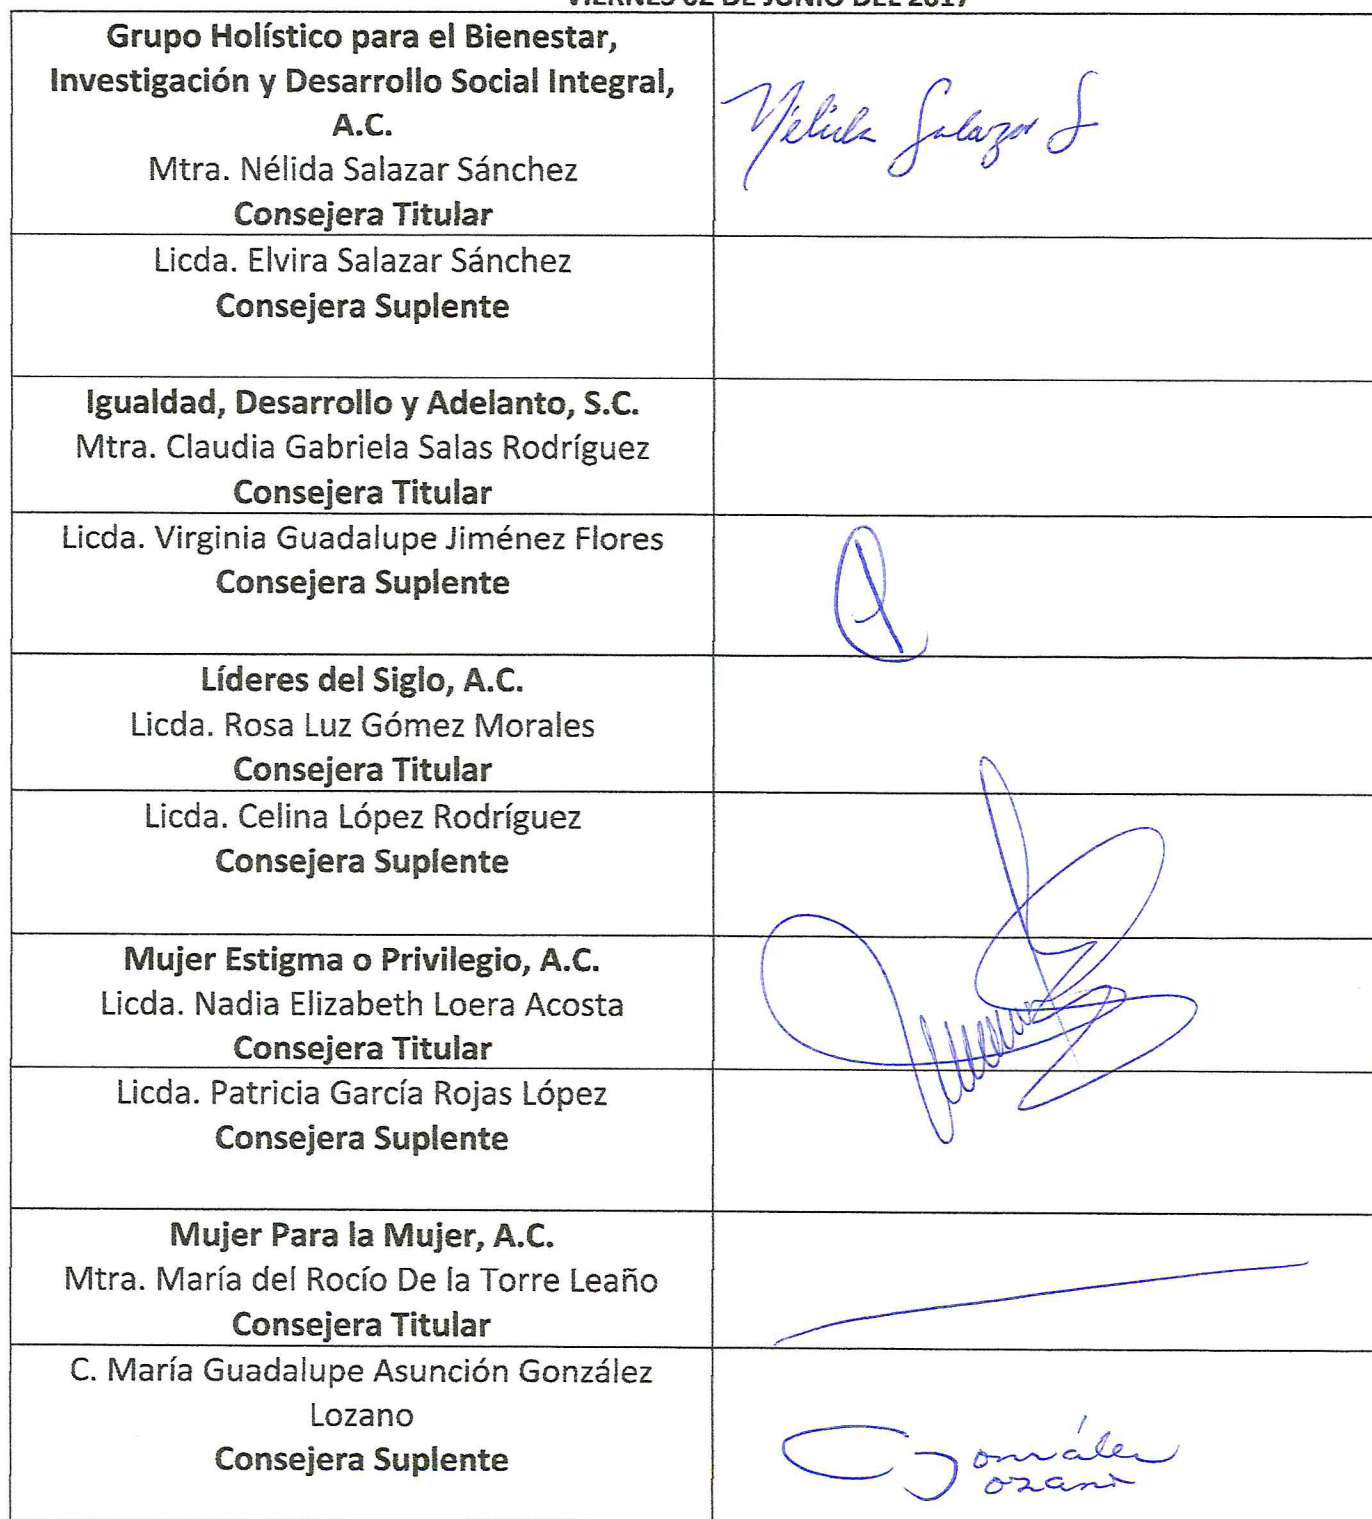 VIERNES 02 DE JUNIO DEL 2017
Grupo Holístico para el Bienestar,
Investigación y Desarrollo Social Integral,
A.C.
Mtra. Nélida Salazar Sánchez
Consejera Titular
Nélida Salazar S
Licda. Elvira Salazar Sánchez
Consejera Suplente
Igualdad, Desarrollo y Adelanto, S.C.
Mtra. Claudia Gabriela Salas Rodríguez
Consejera Titular
Licda. Virginia Guadalupe Jiménez Flores
Consejera Suplente
Líderes del Siglo, A.C.
Licda. Rosa Luz Gómez Morales
Consejera Titular
Licda. Celina López Rodríguez
Consejera Suplente
Mujer Estigma o Privilegio, A.C.
Licda. Nadia Elizabeth Loera Acosta
Consejera Titular
Licda. Patricia García Rojas López
Consejera Suplente
Mujer Para la Mujer, A.C.
Mtra. María del Rocío De la Torre Leaño
Consejera Titular
C. María Guadalupe Asunción González
Lozano
Consejera Suplente
González
ozano